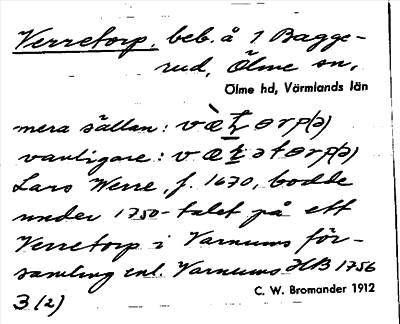 Verretorp, beb. å 1 Bagge-
rud, Ölme sn,
Ölme hd, Värmlands län
mera sällan:
vanligare:
Lars Werre, f. 1670, bodde
under 1750-talet på ett
Verretorp i Varnums för-
samling enl. Varnums HB 1756
3(2)
C. W. Bromander 1912